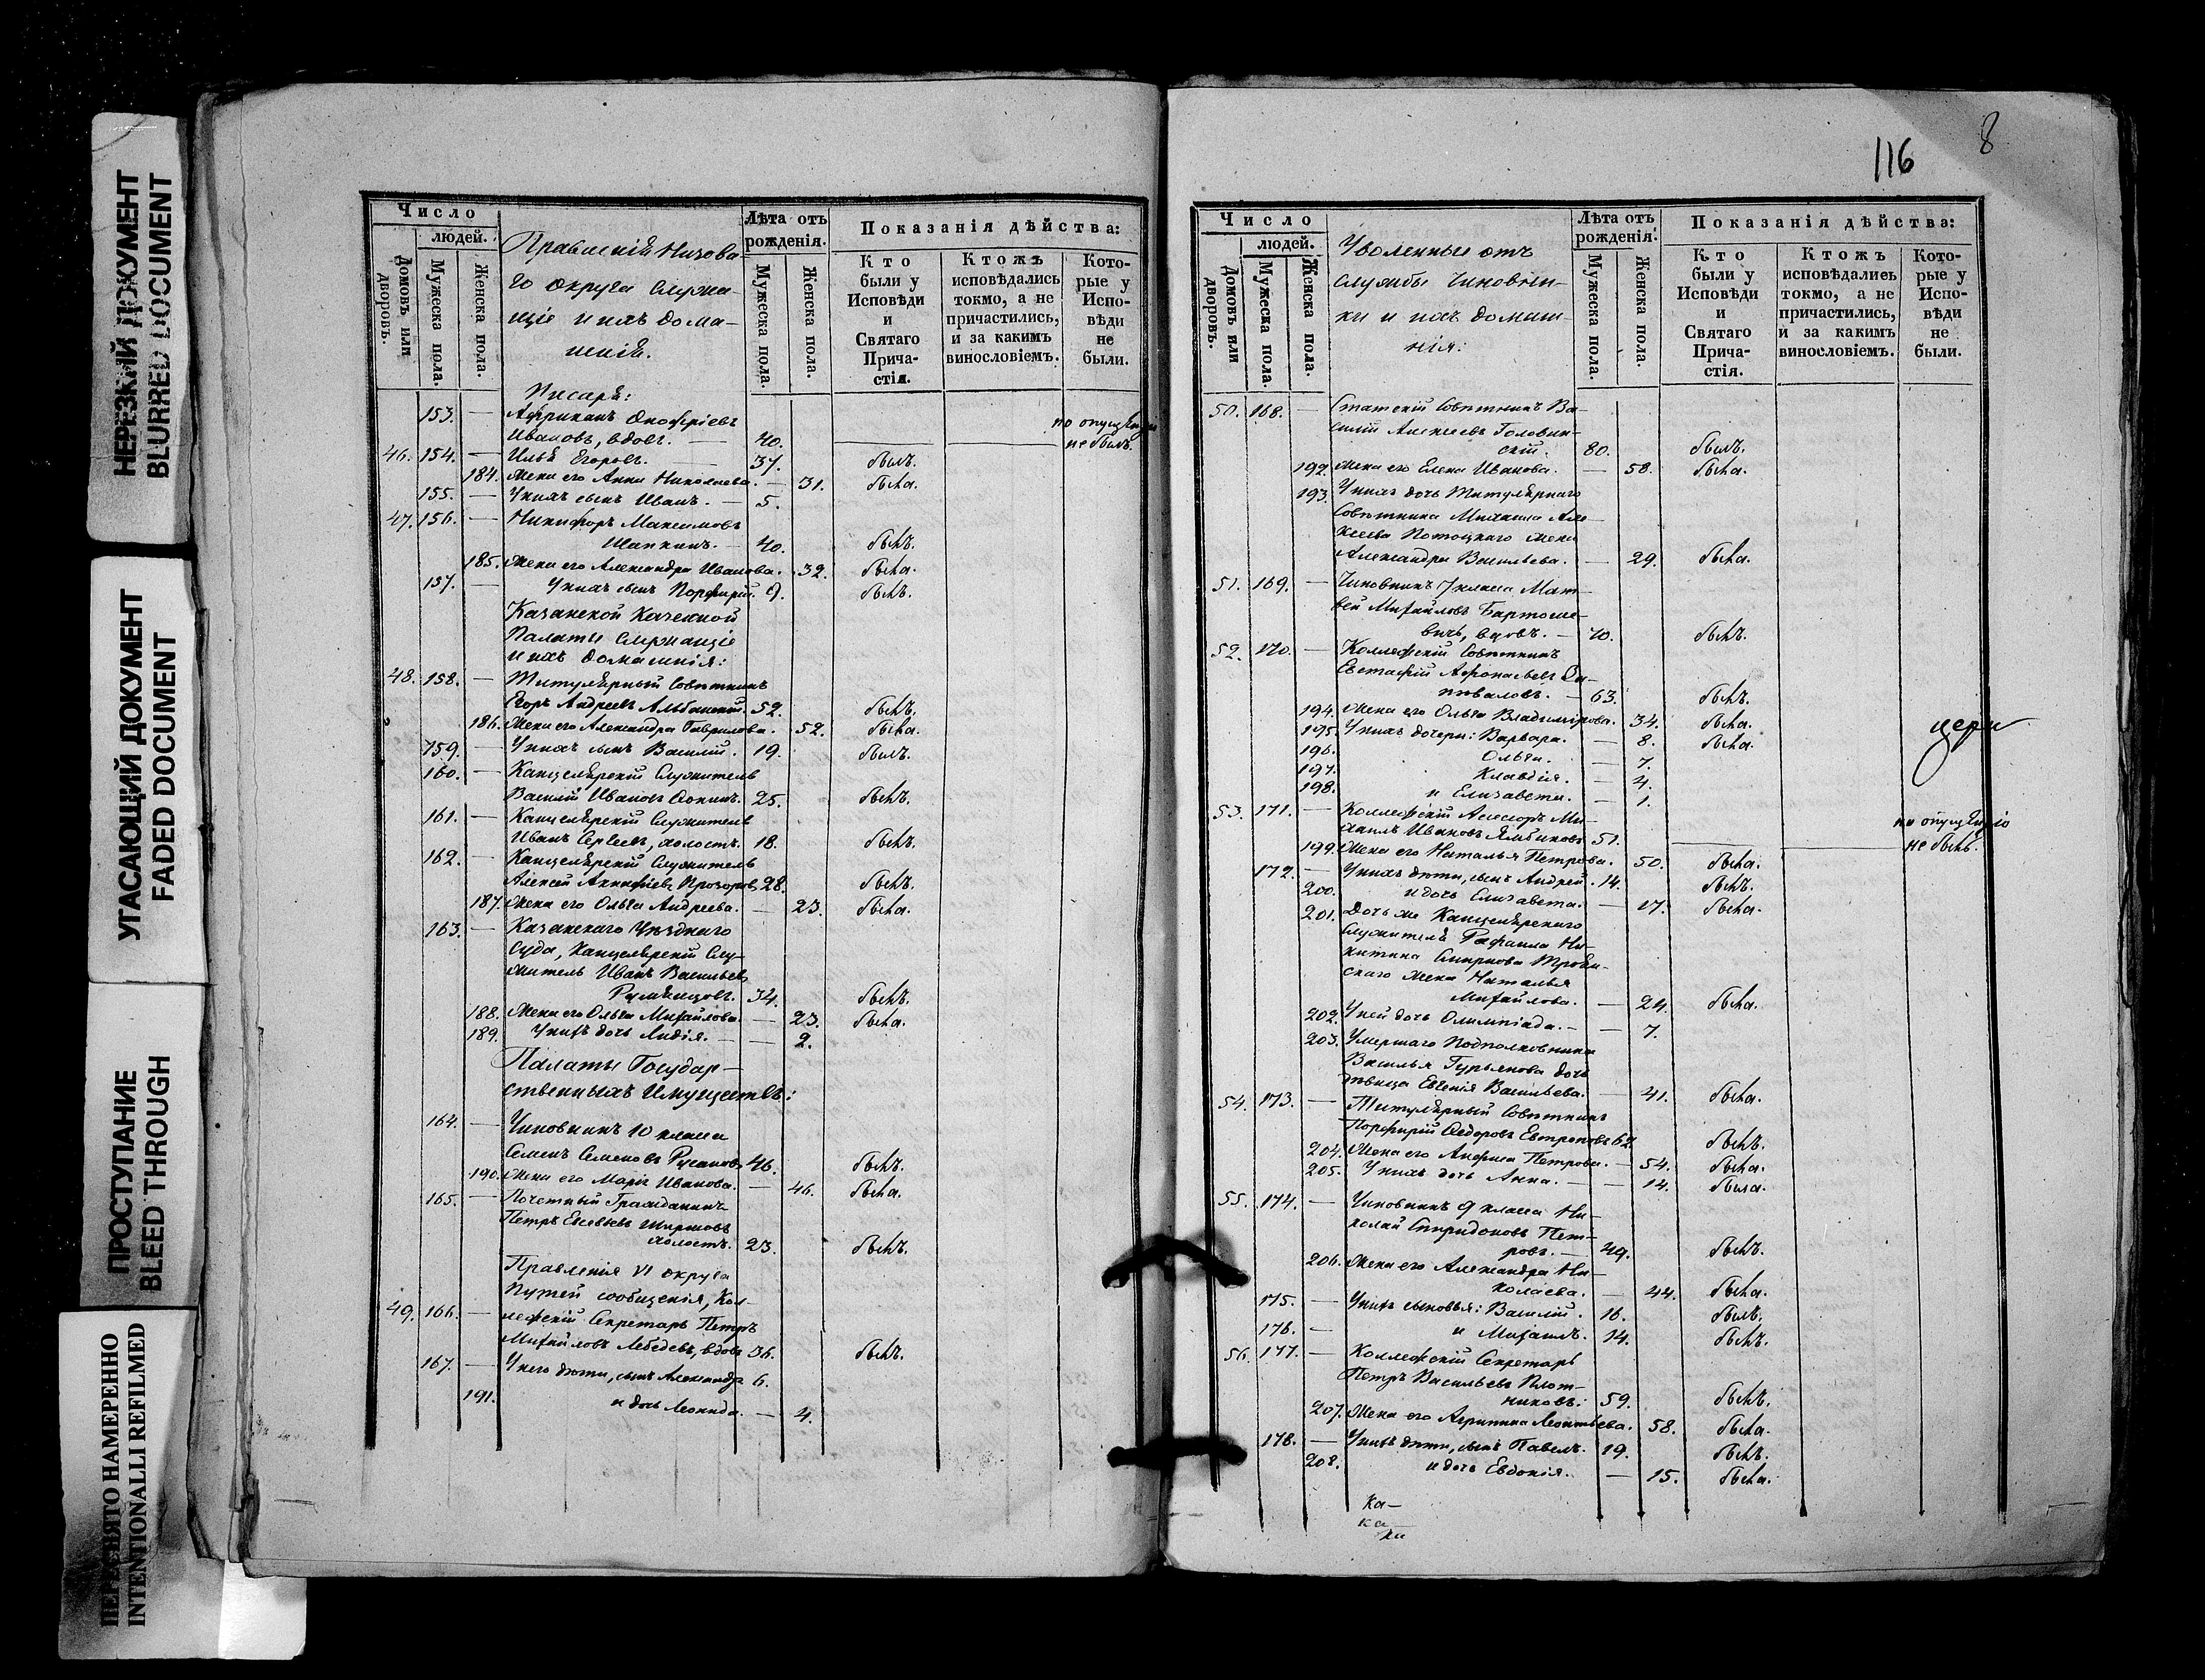 НЕРЕЗКИЙ ДОКУМЕНТ
BLURRED DOCUMENT
УГАСАЮЩИЙ ДОКУМЕНТ
FADED DOCUMENT
ПРОСТУПАНИЕ
BLEED THROUGH
ПЕРЕСНЯТО НАМЕРЕННО
INTENTIONALLI REFILMED
Число
людей.
Домовъ или дворовъ.
Мужеска пола.
Женска пола.
Правленія Низова
го округа Служа-
щіе и ихъ дома-
шніе.
Лѣта отъ рожденія.
Мужеска пола.
Женска пола.
Показанія дѣйства:
Кто были у Исповѣди и Святаго Прича-стія.
Ктожъ исповѣдались токмо, а не причастились, и за какимъ винословіемъ.
Кото-рые у Испо-вѣди не были.
Писаря:
153. — Африканъ Онофріевъ
по опущенію
Ивановъ, вдовъ. — 40. не былъ.
46. 154. — Илья Егоровъ. 37. былъ.
184. Жена его Анна Николаева. — 31. была.
155. — У нихъ сынъ Иванъ. — 5.
47. 156. — Никифоръ Максимовъ
Шапкинъ. — 40. былъ.
185. Жена его Александра Иванова. 32. была.
157. — У нихъ сынъ Порфирій. 9. былъ.
Казанской Казенной
Палаты Служащіе
и ихъ домашнія:
48. 158. — Титулярный Совѣтникъ
Егоръ Андреевъ 52. былъ.
186. Жена его Александра Гаврилова. 52. была.
159. — У нихъ сынъ Василій. 19. былъ.
160. — Канцелярскій Служитель
Василій Ивановъ 25. былъ.
161. — Канцелярскій Служитель
Иванъ Сергеевъ, холостъ. 18. былъ.
162. — Канцелярскій Служитель
Алексей Прозоровъ 28. былъ.
187. Жена его Ольга Андреева. — 23. была.
163. — Казанскаго Уѣзднаго
Суда, Канцелярскій Слу-
житель Иванъ Васильевъ
Румянцовъ. 34. былъ.
188. Жена его Ольга Михайлова. — 23. была.
189. У нихъ дочь Лидія. — — 2.
Палаты Государ-
ственныхъ Имуществъ:
164. — Чиновникъ 10 класса
Семенъ Семеновъ Русановъ 46. былъ.
190. Жена его Марія Иванова. — 46. была.
165. — Почетный Гражданинъ
Петръ Евсевьевъ
холостъ. 23. былъ.
Правленія VI округа
Путей сообщенія, Кол-
49. 166. — лежскій Секретарь Петръ
Михайловъ Лебедевъ, вдовъ 36. былъ.
167. — У него дѣти, сынъ Александръ 6.
191. и дочь Леонида. — 4.
116
8
Число
людей.
Домовъ или дворовъ.
Мужеска пола.
Женска пола.
Уволенные отъ
службы Чиновни-
ки и ихъ домаш-
нія:
Лѣта отъ рожденія.
Мужеска пола.
Женска пола.
Показанія дѣйства:
Кто были у Исповѣди и Святаго Прича-стія.
Ктожъ исповѣдались токмо, а не причастились, и за какимъ винословіемъ.
Кото-рые у Испо-вѣди не были.
50. 168. — Статскій Совѣтникъ Ва-
силій Алексеевъ Головин-
скій. 80. былъ.
192. Жена его Елена Иванова. — 58. была.
193. У нихъ дочь Титулярнаго
Совѣтника Михаила Але-
ксеева Потоцкаго жена
Александра Васильева. — 29. была.
51. 169. — Чиновникъ 7 класса Мат-
вей Михайловъ Бартоше-
вичь, вдовъ. — 70. былъ.
52. 170. — Коллежскій Совѣтникъ
Евстафій Афонасьевъ За-
пѣваловъ. — 63. былъ.
194. Жена его Ольга Владимірова. 34. была.
195. У нихъ дочери: Варвара. — 8. была.
196. Ольга. — 7.
197. Клавдія. — 4.
198. и Елизавета. — 1.
53. 171. — Коллежскій Асессоръ Ми-
по опущенію
хаилъ Ивановъ 51. не былъ.
199. Жена его Наталья Петрова. 50. была.
172. — У нихъ дѣти, сынъ Андрей. 14. былъ.
200. и дочь Елизавета. — 17. была.
201. Дочь же Канцелярскаго
Служителя Рафаила Ни-
китина Смирнова Трои-
скаго жена Наталья
Михайлова. — 24. была.
202. У ней дочь Олимпіада. — — 7.
203. Умершаго Подполковника
Василья Гурьянова дочь
дѣвица Евгенія Васильева. — 41. была.
54. 173. — Титулярный Совѣтникъ
Порфирій Федоровъ Евтроповъ 62. былъ.
204. Жена его Анфиса Петрова. — 54. была.
205. У нихъ дочь Анна. — — 14. была.
55. 174. — Чиновникъ 9 класса Ни-
колай Спиридоновъ Пет-
ровъ. — 49. былъ.
206. Жена его Александра Ни-
колаева. — 44. была.
175. — У нихъ сыновья: Василій. 16. былъ.
176. — и Михаилъ. 14. былъ.
56. 177. — Коллежскій Секретарь
Петръ Васильевъ Плот-
никовъ: 59. былъ.
207. Жена его Агрипина Леонтьева. 58. была.
178. — У нихъ дѣти, сынъ Павелъ. 19. былъ.
208. и дочь Евдокія. — 15. была.